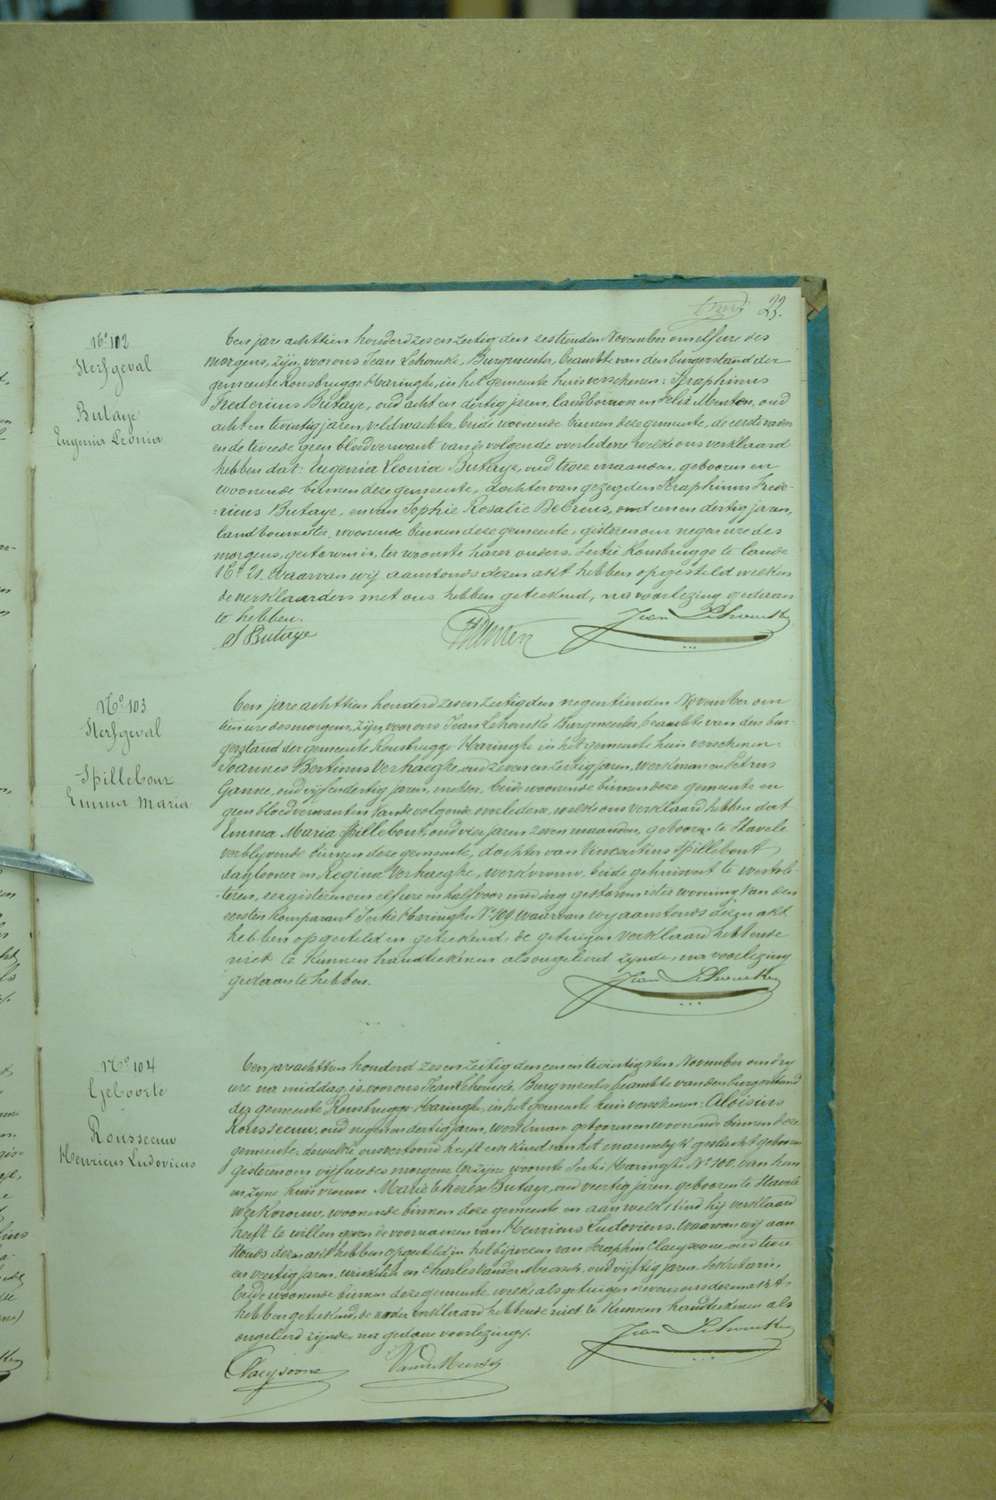 23.
N.º 102
Sterfgeval
Butaye
Eugenia Leonia
Een jare achttien honderd zes en zestig den zestienden November om elf ure des
morgens, zijn voor ons Jean Lehoucke, Burgmeester, beambte van den burgerstand der
gemeente Rousbrugge Haringhe, in het gemeente huis verschenen: Seraphinus
Frederius Butaye, oud acht en dertig jaren, landbouwer en Felix Menten, oud
acht en twintig jaren, veldwachter, beide woonende binnen deze gemeente, de eerste vader
en de tweede geen bloedverwant van de volgende overledene welke ons verklaard
hebben dat: Eugenia Leonia Butaye, oud twee maanden, gebooren en
woonende binnen deze gemeente, dochter van gezegden Seraphinus Frede-
rieus Butaye, en van Sophie Rosalie DeCreus, oud een en dertig jaren,
landbouwster, woonende binnen deze gemeente, gisteren om negen ure des
morgens, gestorven is, ter woonste harer ouders. Sectie Rousbrugge te lande
N.º 21. Waarvan wij aanstonds dezen akt hebben opgesteld welken
de verklaarders met ons hebben geteekend, na voorlezing gedaan
te hebben.
S Butaye
Jean Lehoucke
N.º 103
Sterfgeval
Spillebout
Emma Maria
Een jare achttien honderd zes en zestig den negentienden November om
tien ure des morgens, zijn voor ons Jean Lehoucke Burgmeester, beambte van den bur-
gerstand der gemeente Rousbrugge Haringhe in het gemeente huis verschenen:
Joannes Bertinus Verhaeghe, oud zeven en zestig jaren, werkman en Petrus
Ganne, oud vijf en dertig jaren, beide woonende binnen deze gemeente en
geen bloedverwanten van de volgende overledene, welke ons verklaard hebben dat
Emma Maria Spillebout, oud vier jaren zeven maanden, geboren te Stavele
verblyvende binnen deze gemeente, dochter van Vincentius Spillebout
daglooner en Regina Verhaeghe, werkvrouw, beide gehuisvest te Westvle-
teren, eergisteren om elf ure en half voor middag gestorven is ter wooning van den
eersten komparant Sectie Haringhe N.º 109 waarvan wij aanstonds dezen akt
hebben opgesteld en geteekend, de getuigen verklaard hebbende
niet te kunnen handteekenen als ongeleerd zynde, na voorlezing
gedaan te hebben.
Jean Lehoucke
N.º 104
Geboorte
Rousseeuw
Henricus Ludovicus
Een jare achttien honderd zes en zestig den een en twintigsten November om dry
ure na middag, is voor ons Jean Lehoucke Burgmeester beambte van den burgerstand
der gemeente Rousbrugge Haringhe, in het gemeente huis verschenen: Aloisius
Rousseeuw, oud negen en dertig jaren, werkman geboren en woonende binnen deze
gemeente, dewelke ons vertoond heeft een kind van het mannelyk geslacht geboren
gisteren om vijf ure des morgens ter zijne woonste Sectie Haringhe N.º 100, van hem
en zyne huisvrouw Marie Therese Butaye, oud veertig jaren, gebooren te Stavele
Werkvrouw, woonende binnen deze gemeente en aan welk kind hij verklaard
heeft te willen geven de voornamen van Henricus Ludovicus. Waarvan wij aan
stonds dezen akt hebben opgesteld in het bijwezen van Seraphin Claeysoone, oud twee
en veertig jaren, winkelier en Charles Vander Meersch, oud vijftig jaren Sekretaris,
beide woonende binnen deze gemeente welke als getuigen nevens ons dezen akt
hebben geteekend, de vader verklaard hebbende niet te kunnen handteekenen als
ongeleerd zijnde, na gedane voorlezing.
Claeysoone
VanderMeersch
Jean Lehoucke